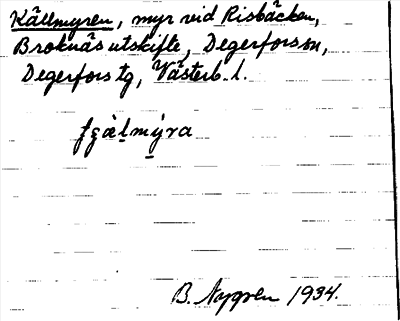 Källmyren, myr vid Risbäcken,
Broknäs utskifte, Degerfors sn,
Degerfors tg, Västerb. l.
fgàlmýra
B. Nygren 1934.